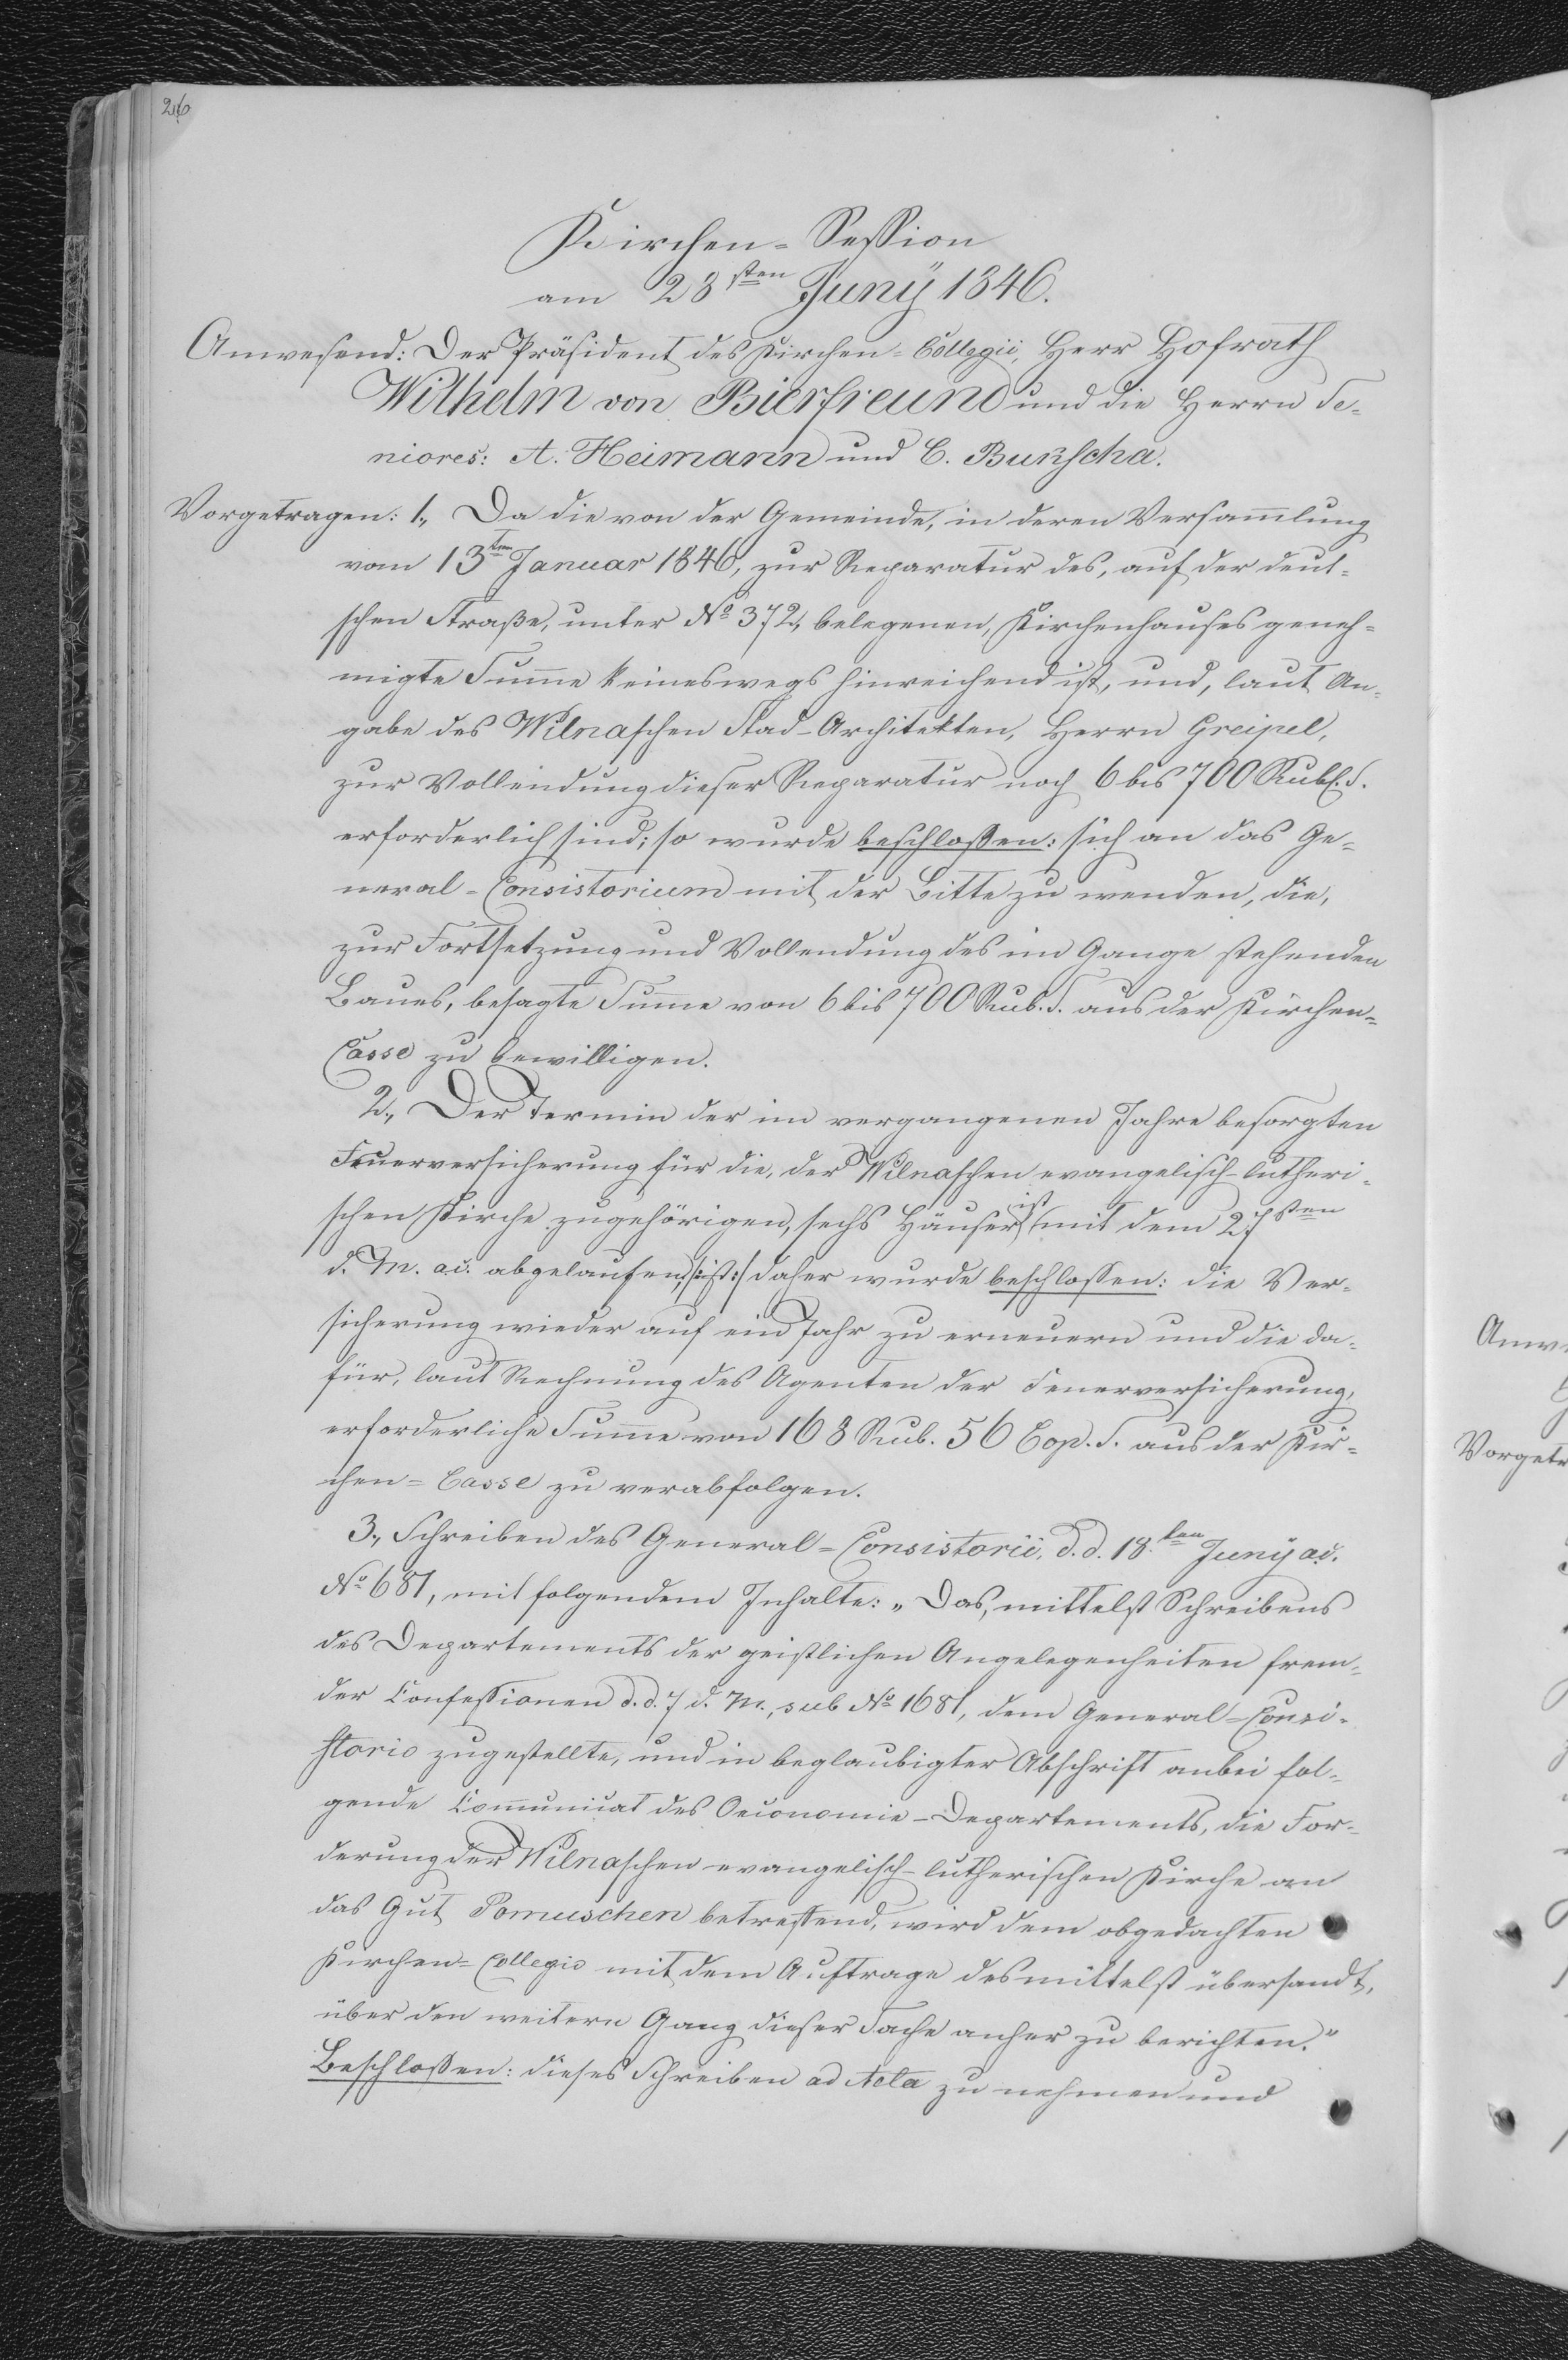 26
Kirchen-Session
am 28sten Juny 1846.
Anwesend: Der Präsident des Kirchen-Collegii, Herr Hofrath
Wilhelm von Bierfreund und die Herrn Se-
niores: A. Heimann und C. Burscha.
Vorgetragen: 1., Da die von der Gemeinde, in deren Versammlung
vom 13ten Januar 1846, zur Reparatur des, auf der deut-
schen Straße, unter No 372, belegenen, Kirchenhauses geneh-
migte Summe keineswegs hinreichend ist, und, laut An-
gabe des Wilnaschen Stad-Architekten, Herrn Greipel,
zur Vollendung dieser Reparatur noch 6 bis 700 Rubl. S.
erforderlich sind; so wurde beschlossen: sich an das Ge-
neral-Consistorium mit der Bitte zu wenden, die,
zur Fortsetzung und Vollendung des im Gange stehenden
Baues, besagte Summe von 6 bis 700 Rub. S. aus der Kirchen-
Casse zu bewilligen.
2., Der Termin der im vergangenen Jahre besorgten
Feuerversicherung für die, der Wilnaschen evangelisch-lutheri-
schen Kirche zugehörigen, sechs Häuser ist mit dem 27sten
d. M. a.c. abgelaufen, /:ist:/ daher wurde beschlossen: die Ver-
sicherung wieder auf ein Jahr zu erneuern und die da-
für, laut Rechnung des Agenten der Feuerversicherung,
erforderliche Summe von 168 Rub. 56 Cop. S. aus der Kir-
chen-Casse zu verabfolgen.
3., Schreiben des General-Consistorii, d.d. 18ten Juny a.c.
No 681, mit folgendem Inhalte: „Das, mittelst Schreibens
des Departements der geistlichen Angelegenheiten frem-
der Confessionen d.d. 7 d. M., sub No 1681, dem General-Consi-
storio zugestellte, und in beglaubigter Abschrift anbei fol-
gende Communicat des Oeconomie-Departements, die For-
derung der Wilnaschen evangelisch-lutherischen Kirche an
das Gut Pomuschen betreffend, wird dem obgedachten
Kirchen-Collegio mit dem Auftrage desmittelst übersandt,
über den weitern Gang dieser Sache anher zu berichten."
Beschlossen: dieses Schreiben ad Acta zu nehmen und
Anwe
Vorgetr